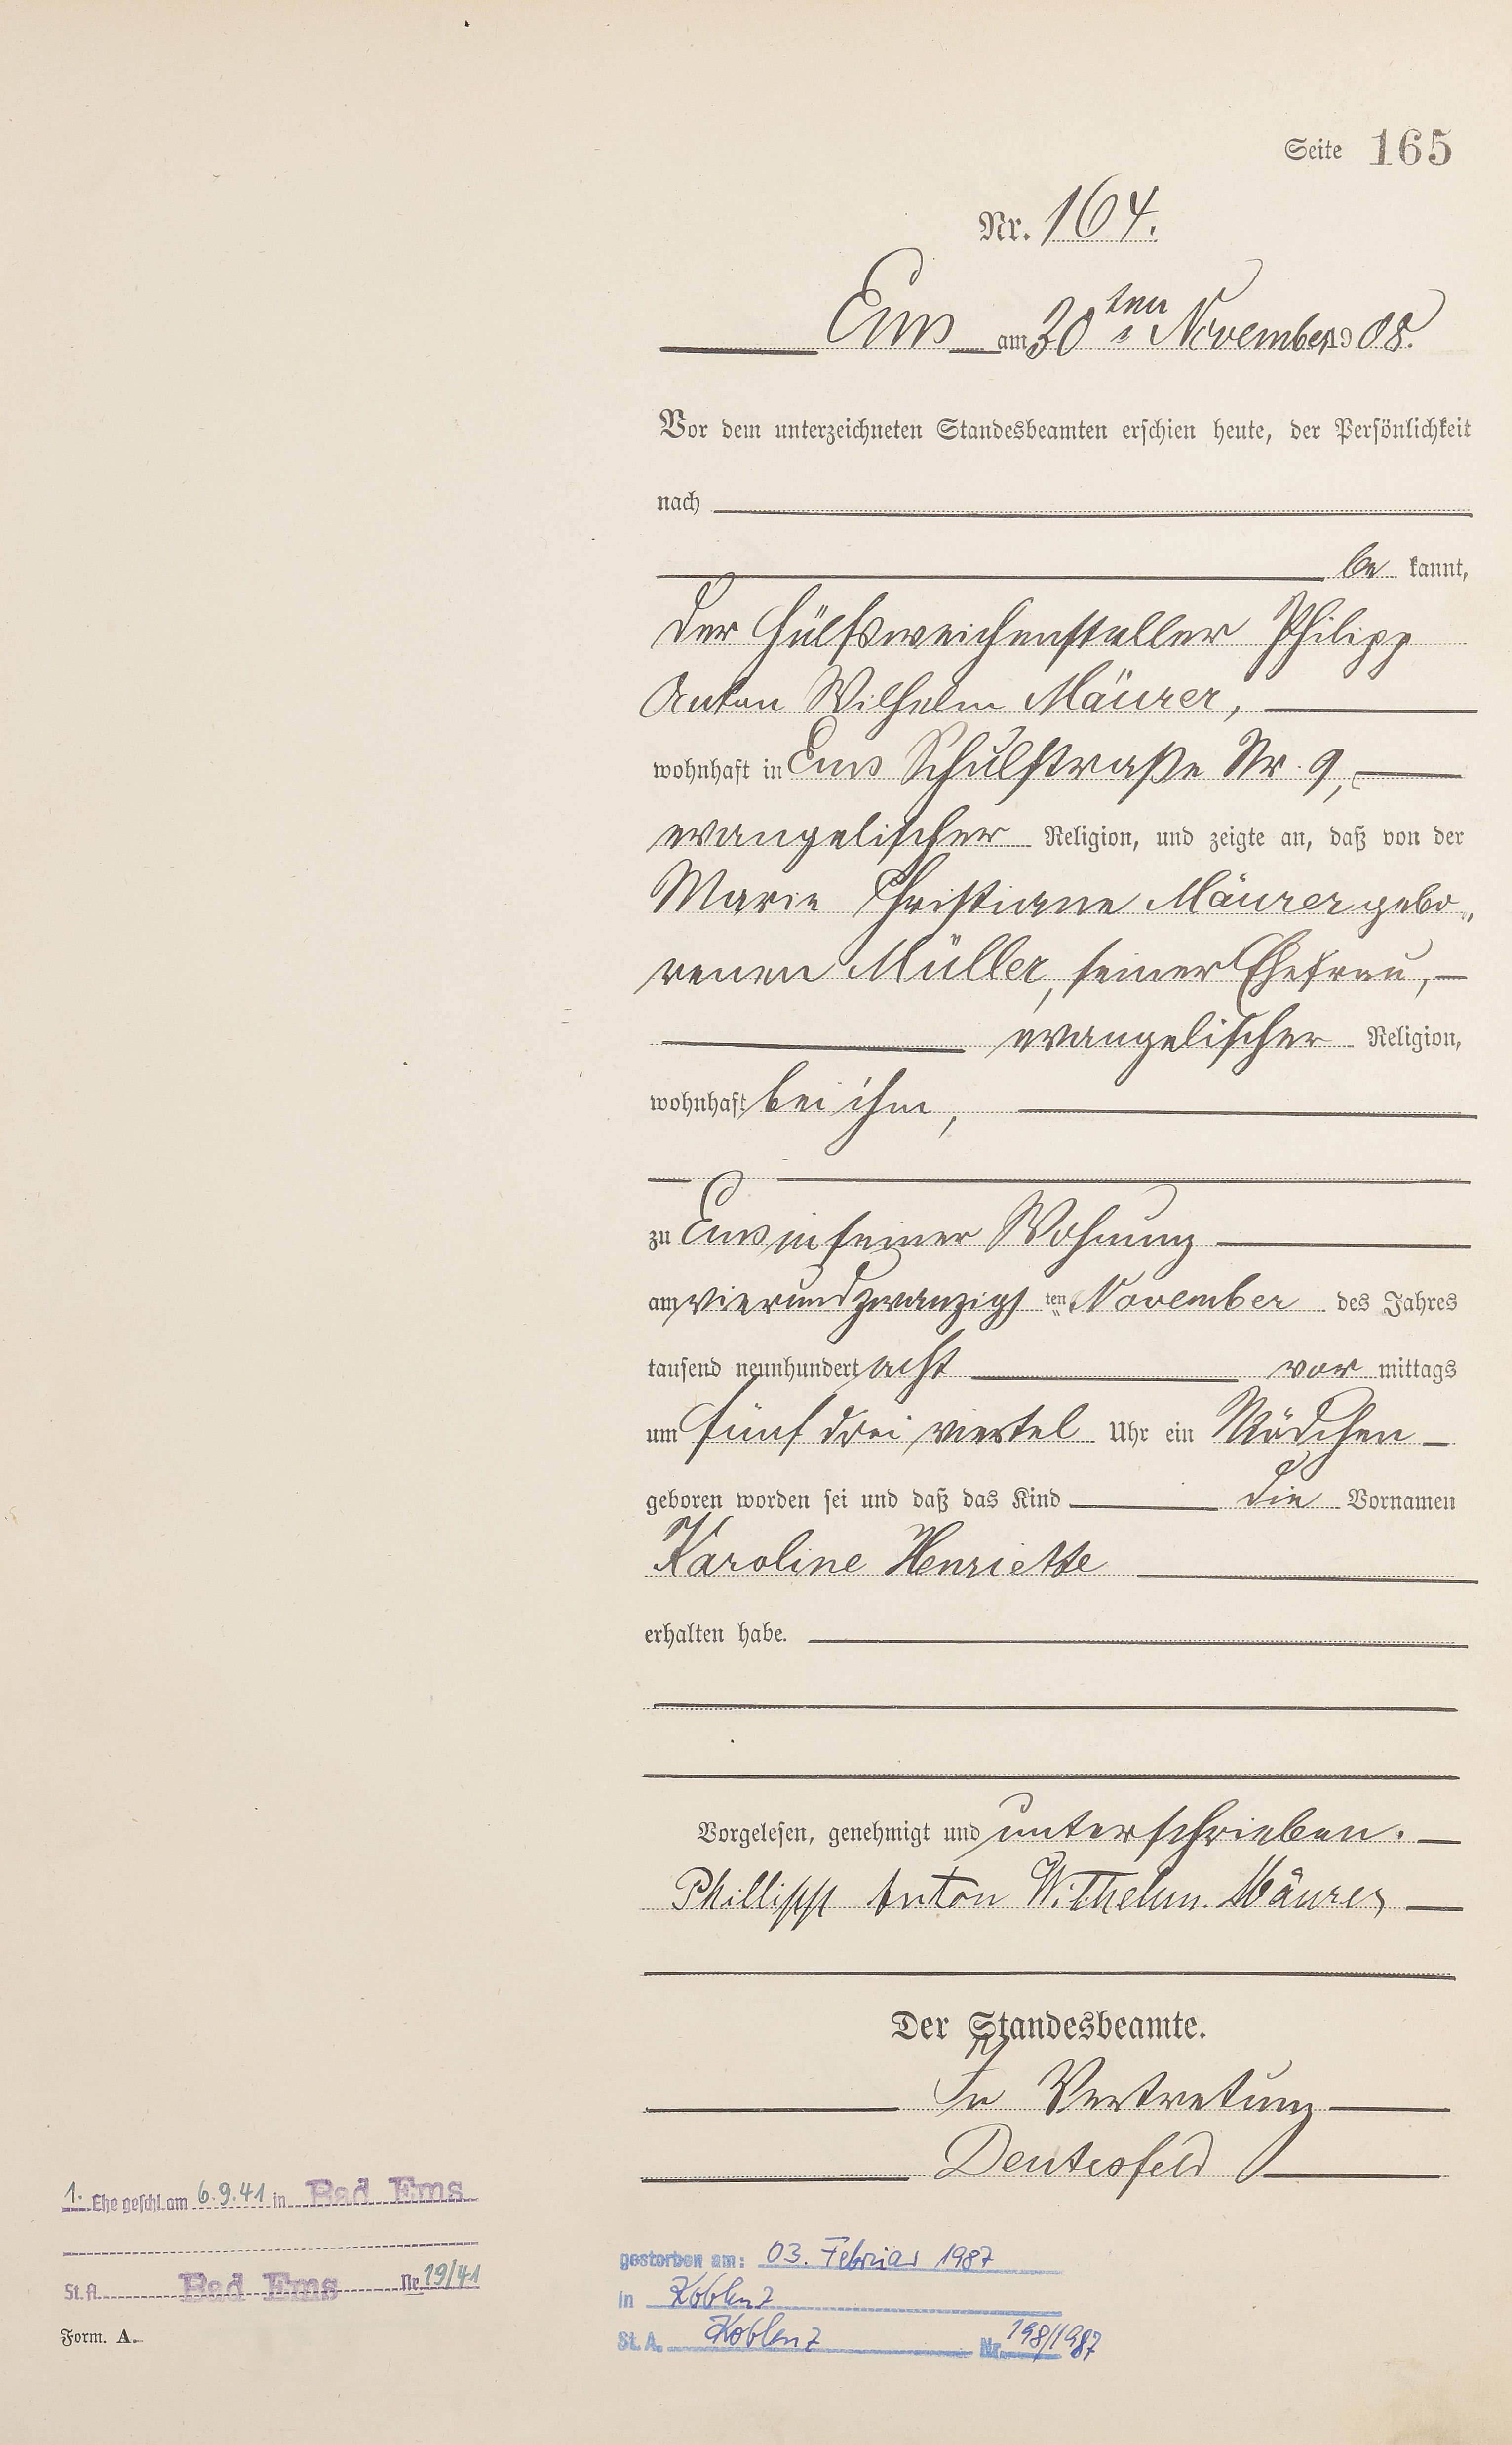 Seite 165
Nr. 164.
Ems am 30ten November 1908.
Vor dem unterzeichneten Standesbeamten erschien heute, der Persönlichkeit
nach
be kannt,
der Hülfsweichensteller Philipp
Anton Wilhelm Mäurer,
wohnhaft in Ems Schulstraße Nr. 9,
evangelischer Religion, und zeigte an, daß von der
Marie Christiane Mäurer gebo„
renen Müller, seiner Ehefrau,
evangelischer Religion,
wohnhaft bei ihm,
zu Ems in seiner Wohnung
am vierundzwanzigsten November des Jahres
tausend neunhundert acht vor mittags
um fünf drei viertel Uhr ein Mädchen
geboren worden sei und daß das Kind die Vornamen
Karoline Henriette
erhalten habe.
Vorgelesen, genehmigt und unterschrieben.
Phillipp Anton Wilhelm. Mäurer
Der Standesbeamte.
In Vertretung
Deutesfeld
1. Ehe geschl. am 6.9.41 in Bad Ems
St. A. Bad Ems Nr. 19/41
Form. A.
gestorben am: 03. Februar 1987
in Koblenz
St. A. Koblenz Nr. 198/1987